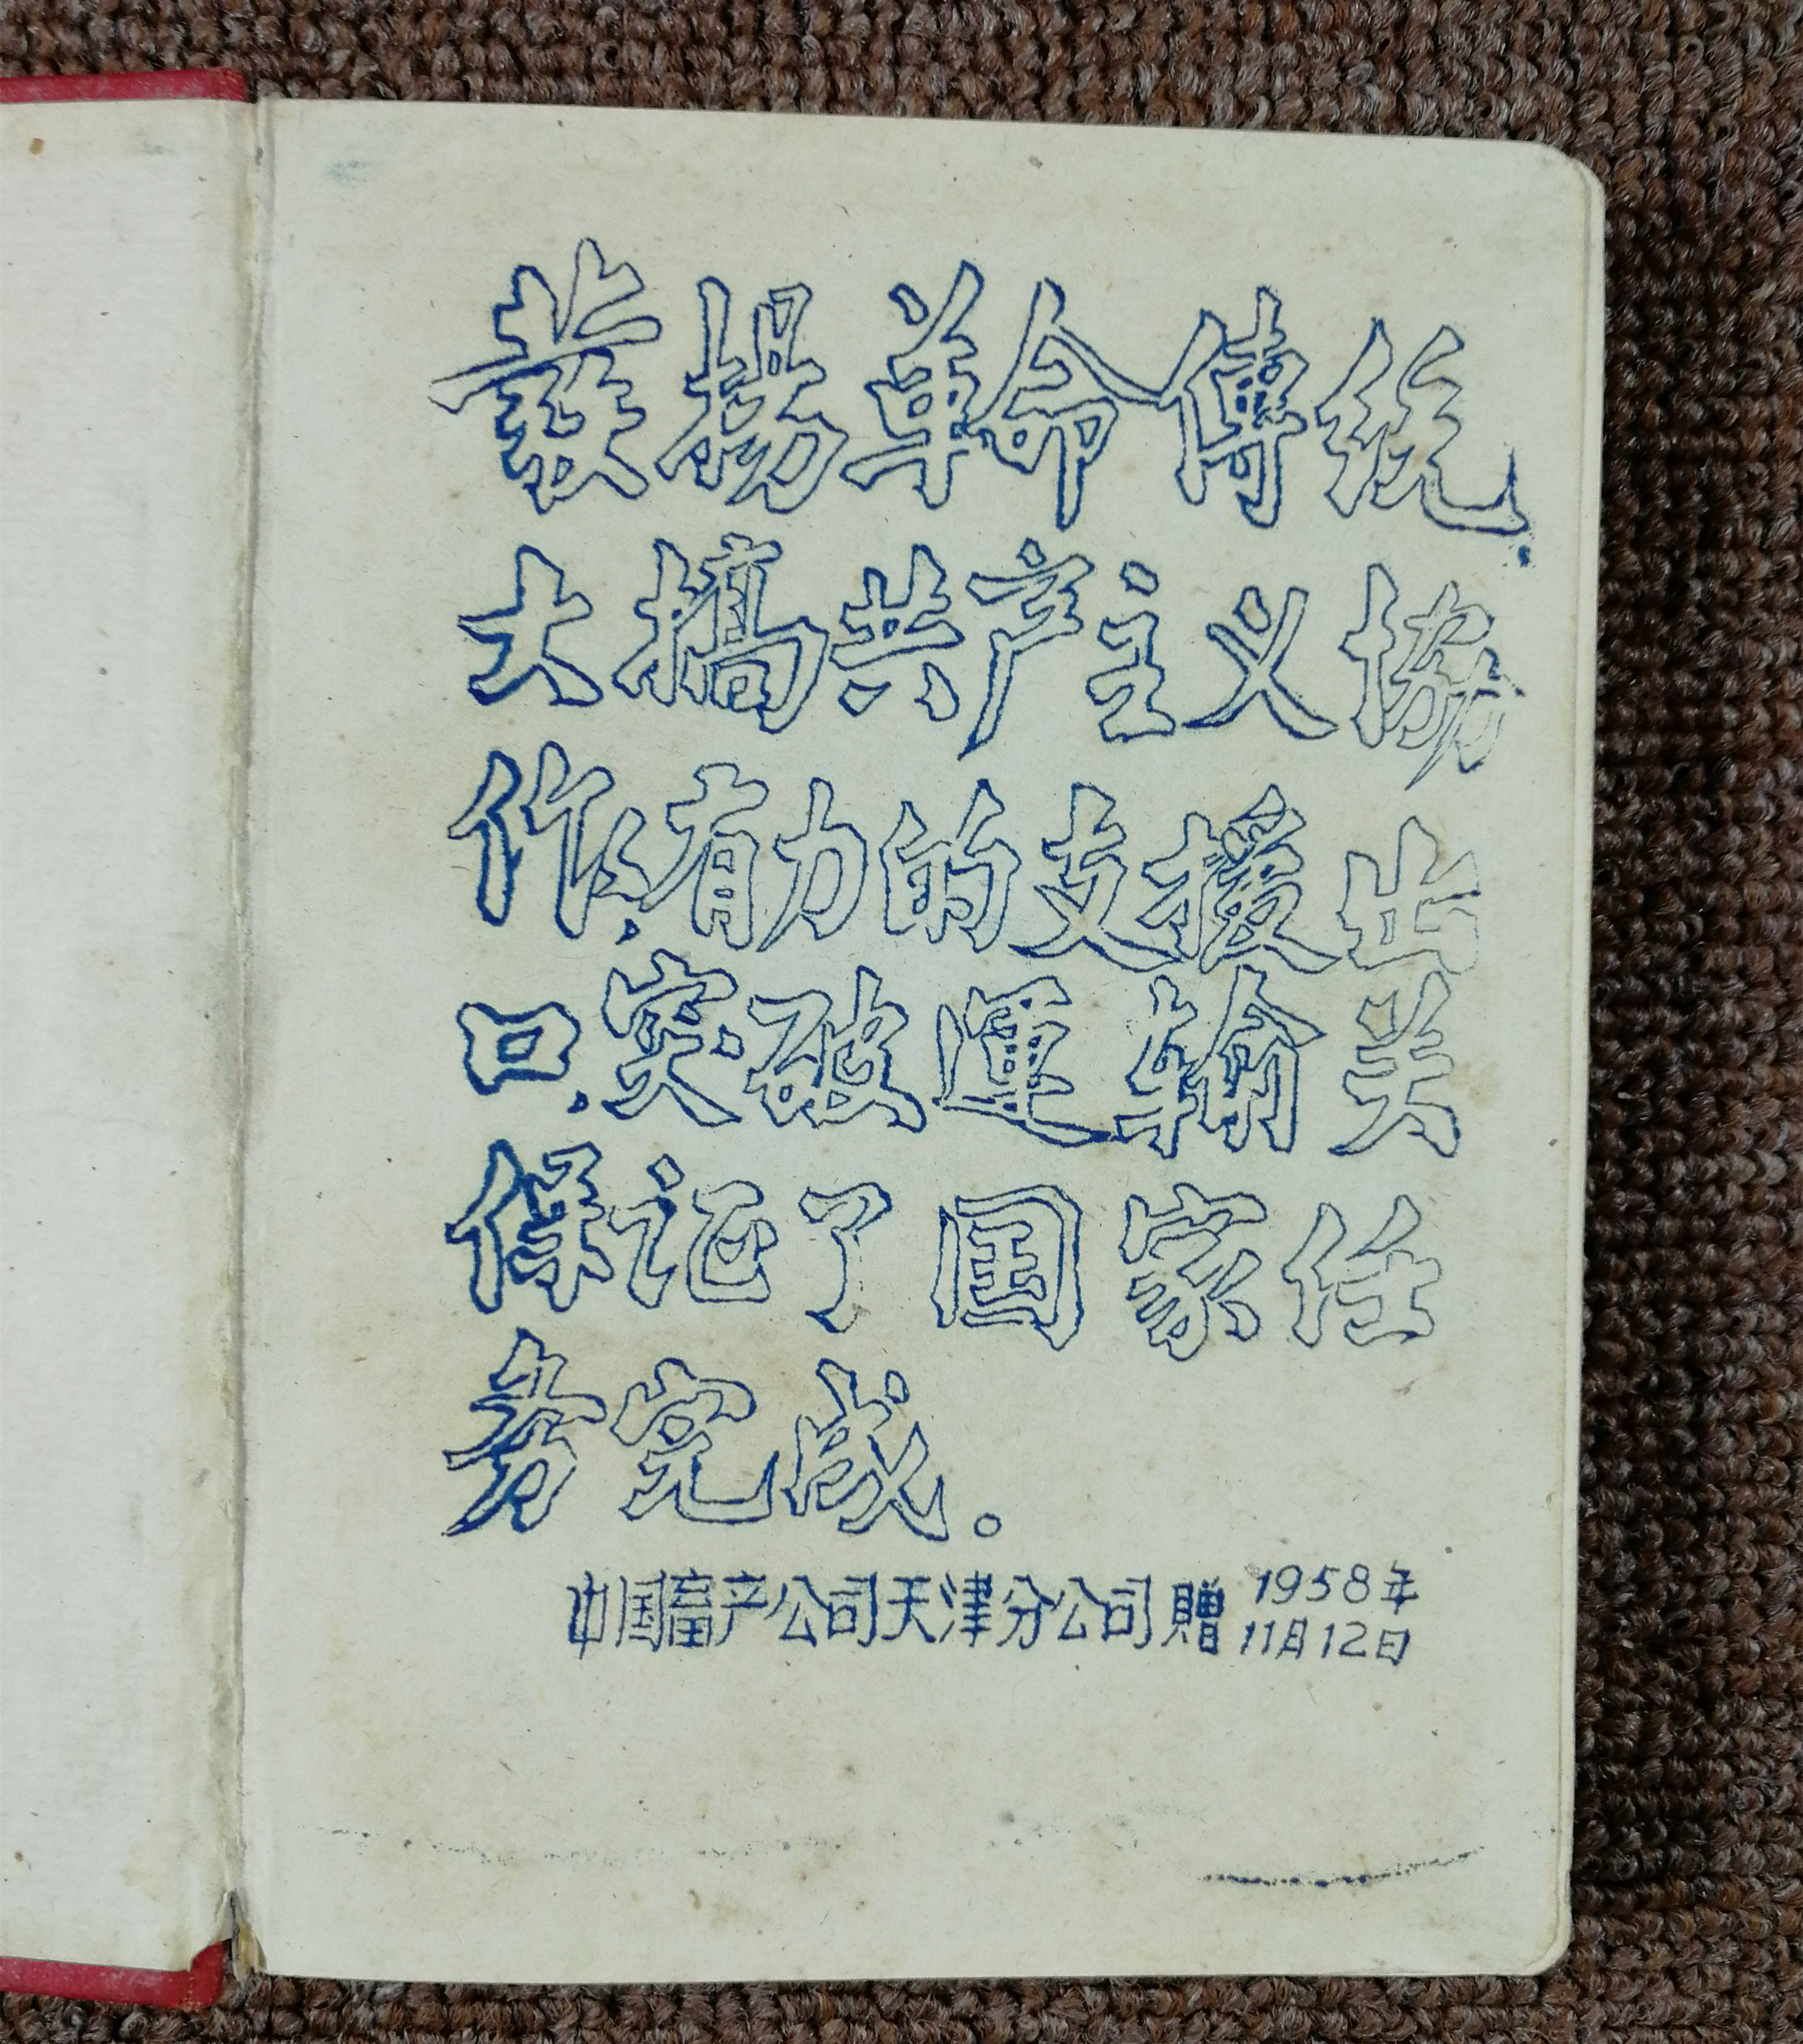 發揚革命傳統,
大搞共产主义協
作,有力的支援出
口,突破運輸关
保证了国家任
务完成。
中国畜产公司天津分公司贈
1958年
11月12日